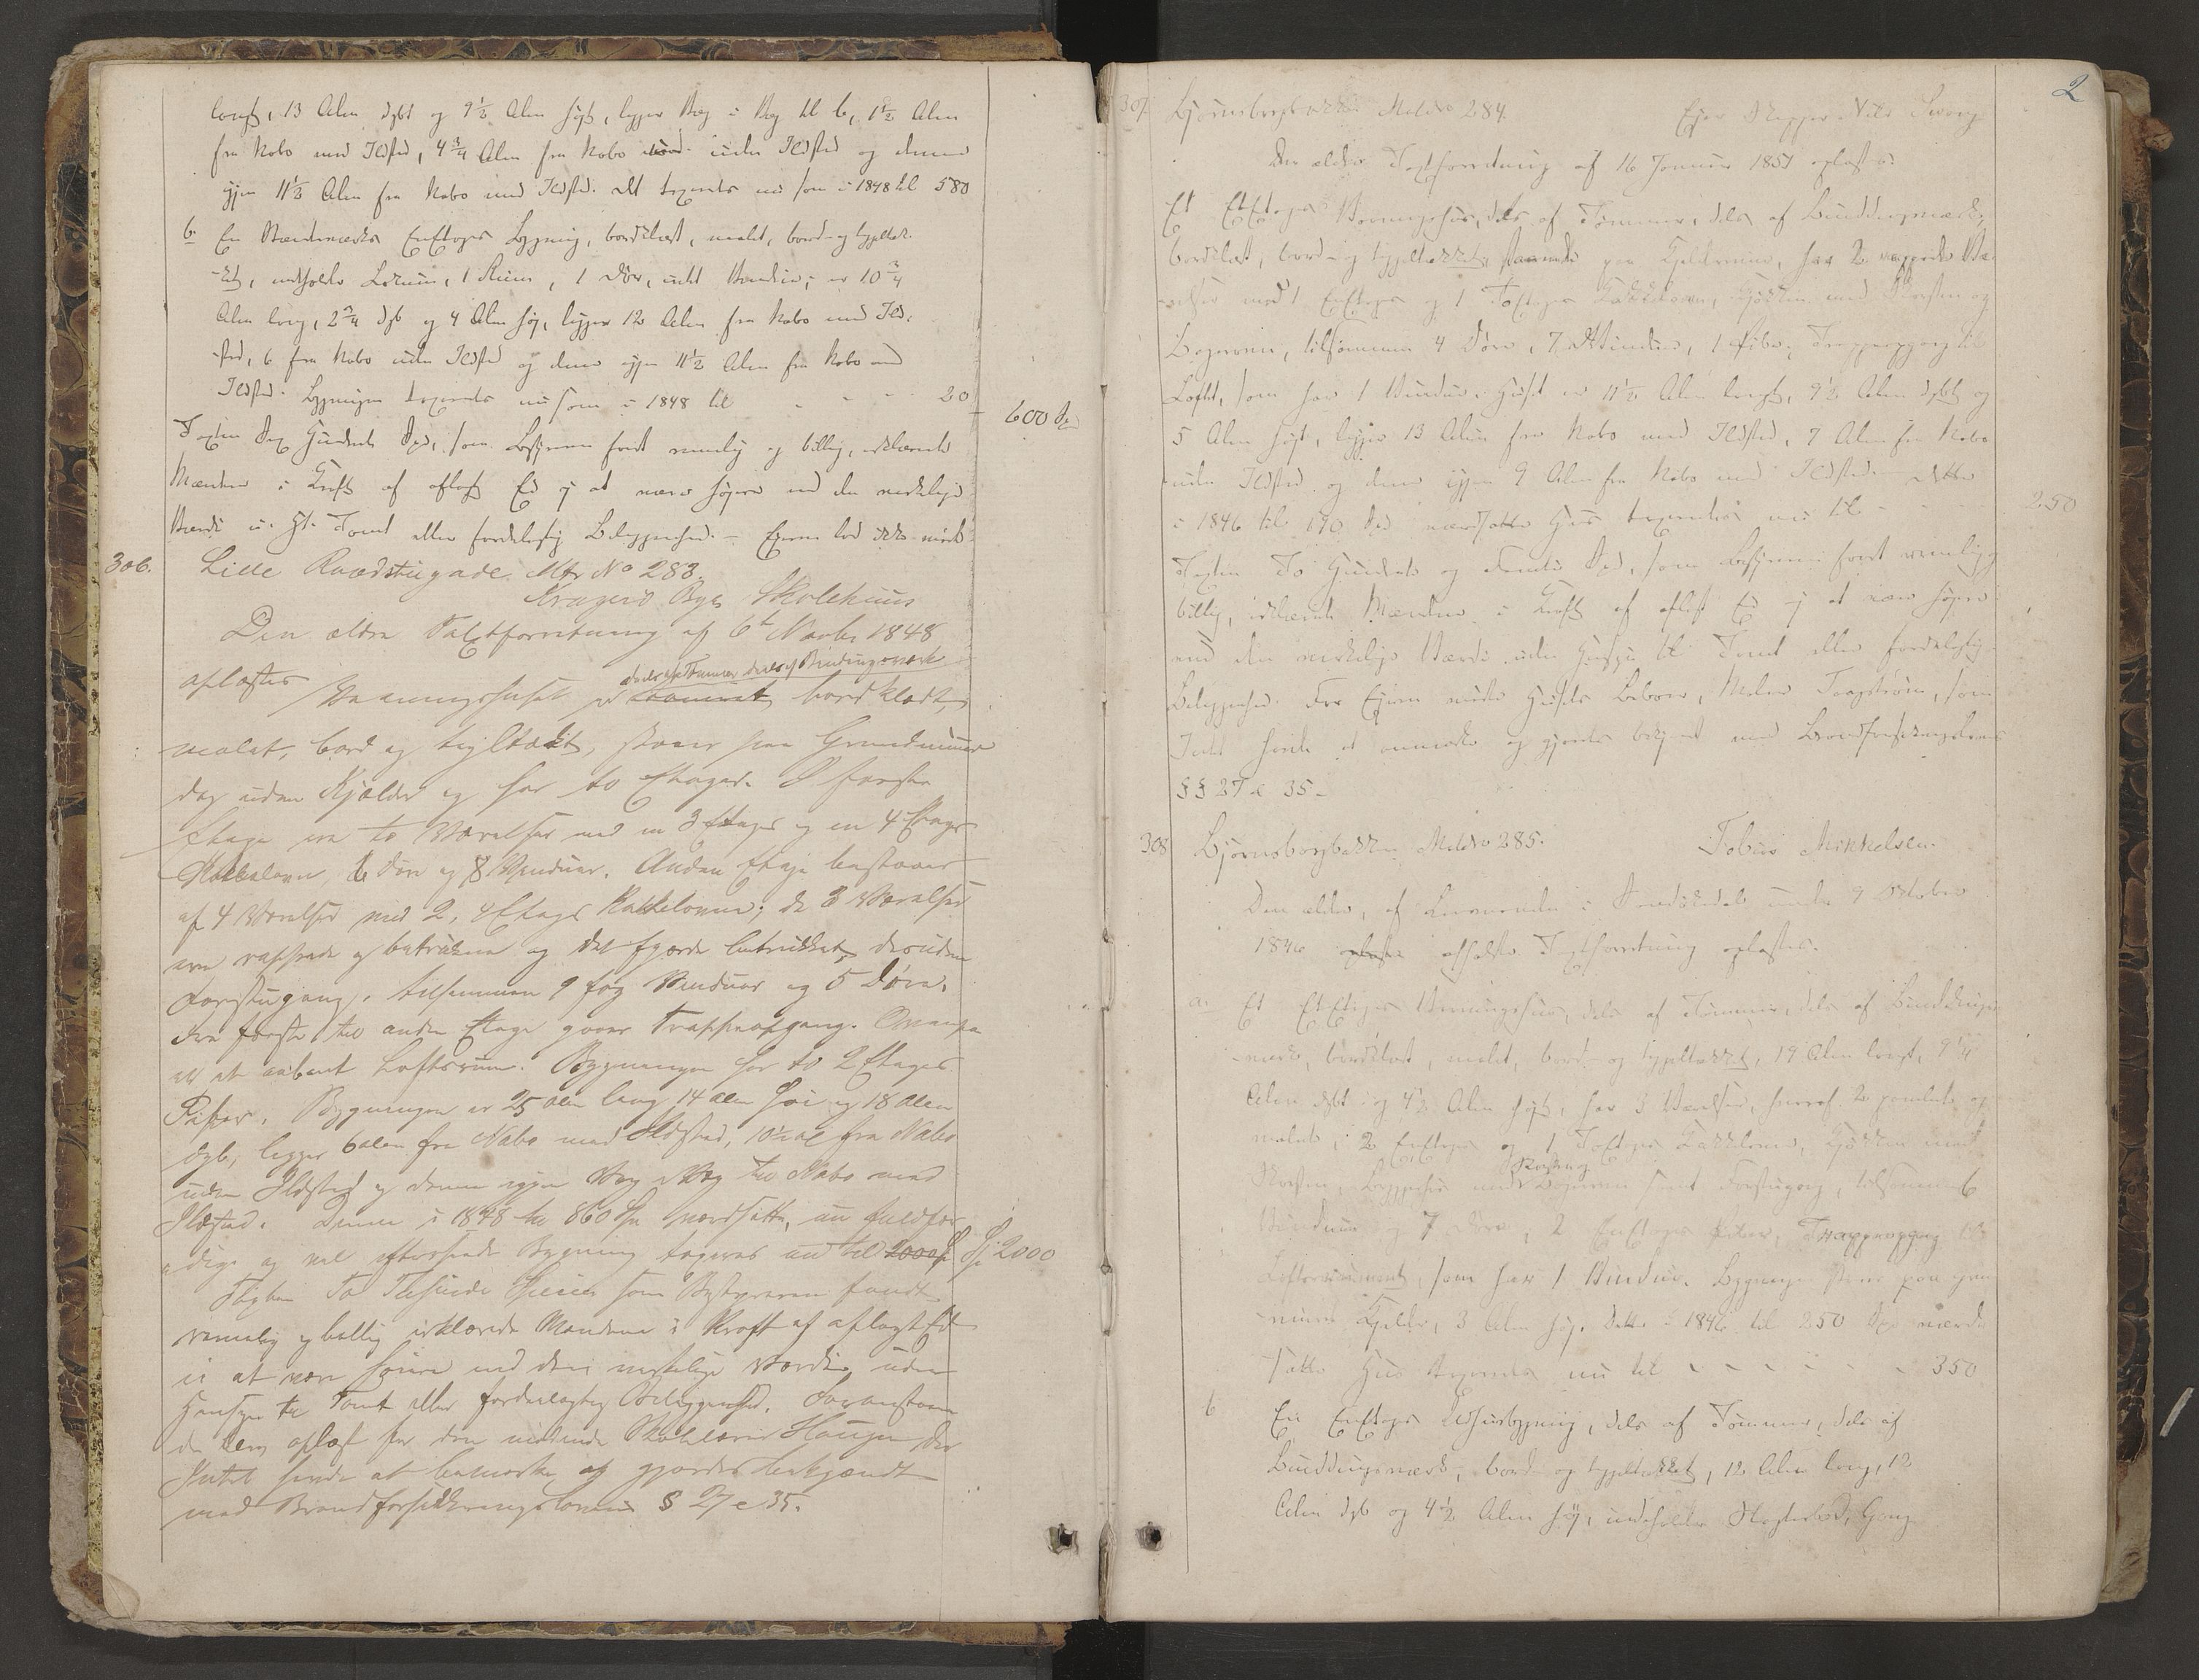 langt, 13 Alen dybt og 9½ Alen høit, ligger Væg i Væg til b, 1½ Alen
fra Nabo med Ildsted, 4¾ Alen fra Nabo uden Ildsted og denne
igjen 11½ Alen fra Nabo med Ildsted. Det taxeredes nu som i 1848 til 580
b. En Bindværks EnEtages Bygning, bordklædt, malet, bord- og tegltæk-
-ket, indholder Locum, 1 Rum, 1 Dør, intet Vindue; er 10¾
Alen lang, 2¾ dyb og 4 Alen høj, ligger 12 Alen fra Nabo med Ild-
-sted, 6 fra Nabo uden Ildsted og denne igjen 11½ Alen fra Nabo med
Ildsted. Bygningen taxeredes nu som i 1848 til - - - 20
600 Spd
Taxten Sex Hundrede Spd, som Bestyreren fandt rimelig og billig, erklærede
Mændene i Kraft af aflagt Ed ej at være højere end den virkelige
Værdi u. H. t. Tomt eller fordelagtig Beliggenhed. - Ejeren lod ikke møde
306. Lille Raadstugade. Mtr No 283.
Kragerø Byes Skolehuus
Den ældre Taxtforretning af 6te Novbr 1848
oplæstes
deels af Tømmer deels af Bindingsværk
Vaaningshuset er bordklædt,
malet, bord og tegltækt, staaer paa Grundmuur
dog uden Kjælder og har to Etager. I første
Etage ere to Værelser med en 3 Etages og en 4 Etages
Kakkelovn, 6 Døre og 8 Vinduer. Anden Etage bestaaer
af 4 Værelser med 2, 4 Etages Kakkelovne; de 3 Værelser
ere rappede og betrukne og det fjerde betrukket, desuden
Forstugang, tilsammen 9 fag Vinduer og 5 Døre.
Fra første til anden Etage gaaer Trappeopgang. Ovenpaa
er et aabent Loftsrum. Bygningen har to 2 Etages
Piber. Bygningen er 25 alen lang 14 alen høi og 18 Alen
dyb, ligger 6 alen fra Nabo med Ildsted, 10½ al fra Nabo
uden Ildsted og denne igjen Væg i Væg til Nabo med
Ildsted. Denne i 1848 til 860 Spd værdsatte, nu fuldfær-
dige og vel efterseede Bygning taxeres nu til 2000 Sp Sp 2000
Taxten To Tusinde Specier som Bestyreren fandt
rimelig og billig erklærede Mændene i Kraft af aflagt Ed
ei at være høiere end den virkelige Værdi, uden
Hensyn til Tomt eller fordeelagtig Beliggenhed. Foranstaaen
de blev oplæst for den mødende Skolelærer Haugen der
Intet havde at bemærke og gjordes bekjændt
med Brandforsikringslovens § 27 e 35.
2
307 Bjørnsborgbakken Matr No 284. Ejer Skipper Nils
Den ældre Taxtforretning af 16 Januar 1851 oplæstes.
Et EtEtages Vaaningshus, dels af Tømmer, dels af Bindingsværk,
bordklædt, bord- og tegltækket, staaende paa Kjeldermuur, har 2 rappede Væ-
-relser med 1 EnEtages og 1 ToEtages Kakkelovn, Kjøkken med Skorsten og
Bagerovn, tilsammen 4 Døre, 7 Vinduer, 1 Pibe. Trappeopgang til
Loftet, som har 1 Vindue. Huset er 11½ Alen langt, 9½ Alen dybt og
5 Alen høit, ligger 13 Alen fra Nabo med Ildsted, 7 Alen fra Nabo
uden Ildsted og denne igjen 9 Alen fra Nabo med Ildsted. Dette
i 1846 til 190 Spd værdsatte Hus taxeredes nu til - - - 250
Taxten To Hundrede og Femti Spd, som Bestyreren fandt rimelig og
billig, erklærede Mændene i Kraft af aflagt Ed ej at være højere
end den virkelige Værdi uden Hensyn til Tomt eller fordelagtig
Beliggenhed. For Ejeren mødte Husets Beboer, Maler Fagstrøm, som
Intet havde at anmærke og gjordes bekjendt med Brandforsikringslovens
§§ 27 e 35 -
308 Bjørnsborgbakken Matr No 285. Tobias Mikkelsen.
Den ældre, af Lensmanden i under 9 Oktober
1846 afholdte Taxtforretning oplæstes.
a. Et EtEtages Vaaningshus, dels af Tømmer, dels af Bindings-
-værk, bordklædt, malet, bord- og tegltækket, 19 Alen langt, 9¾
Alen dybt og 4½ Alen højt, har 3 Værelser, hvoraf 2 panelede og
malede, 2 EnEtages og 1 ToEtages Kakkelovn, Kjøkken med
Skorsten, Bryggerhus med Skorsten og Bagerovn samt Forstugang, tilsammen 6
Vinduer og 7 Døre, 2 EnEtages Piber, Trappeopgang til
Loftsrummet, som har 1 Vindue. Bygningen staar paa en
muret Kjelder, 3 Alen høj. Dette i 1846 til 250 Spd værd-
satte Hus taxeredes nu til - - - - 350
b En EnEtages Udhusbygning, dels af Tømmer, dels af
Bindingsværk, bord- og tegltækket, 12 Alen lang, 12
Alen dyb og 4½ Alen høj, indeholder Gang